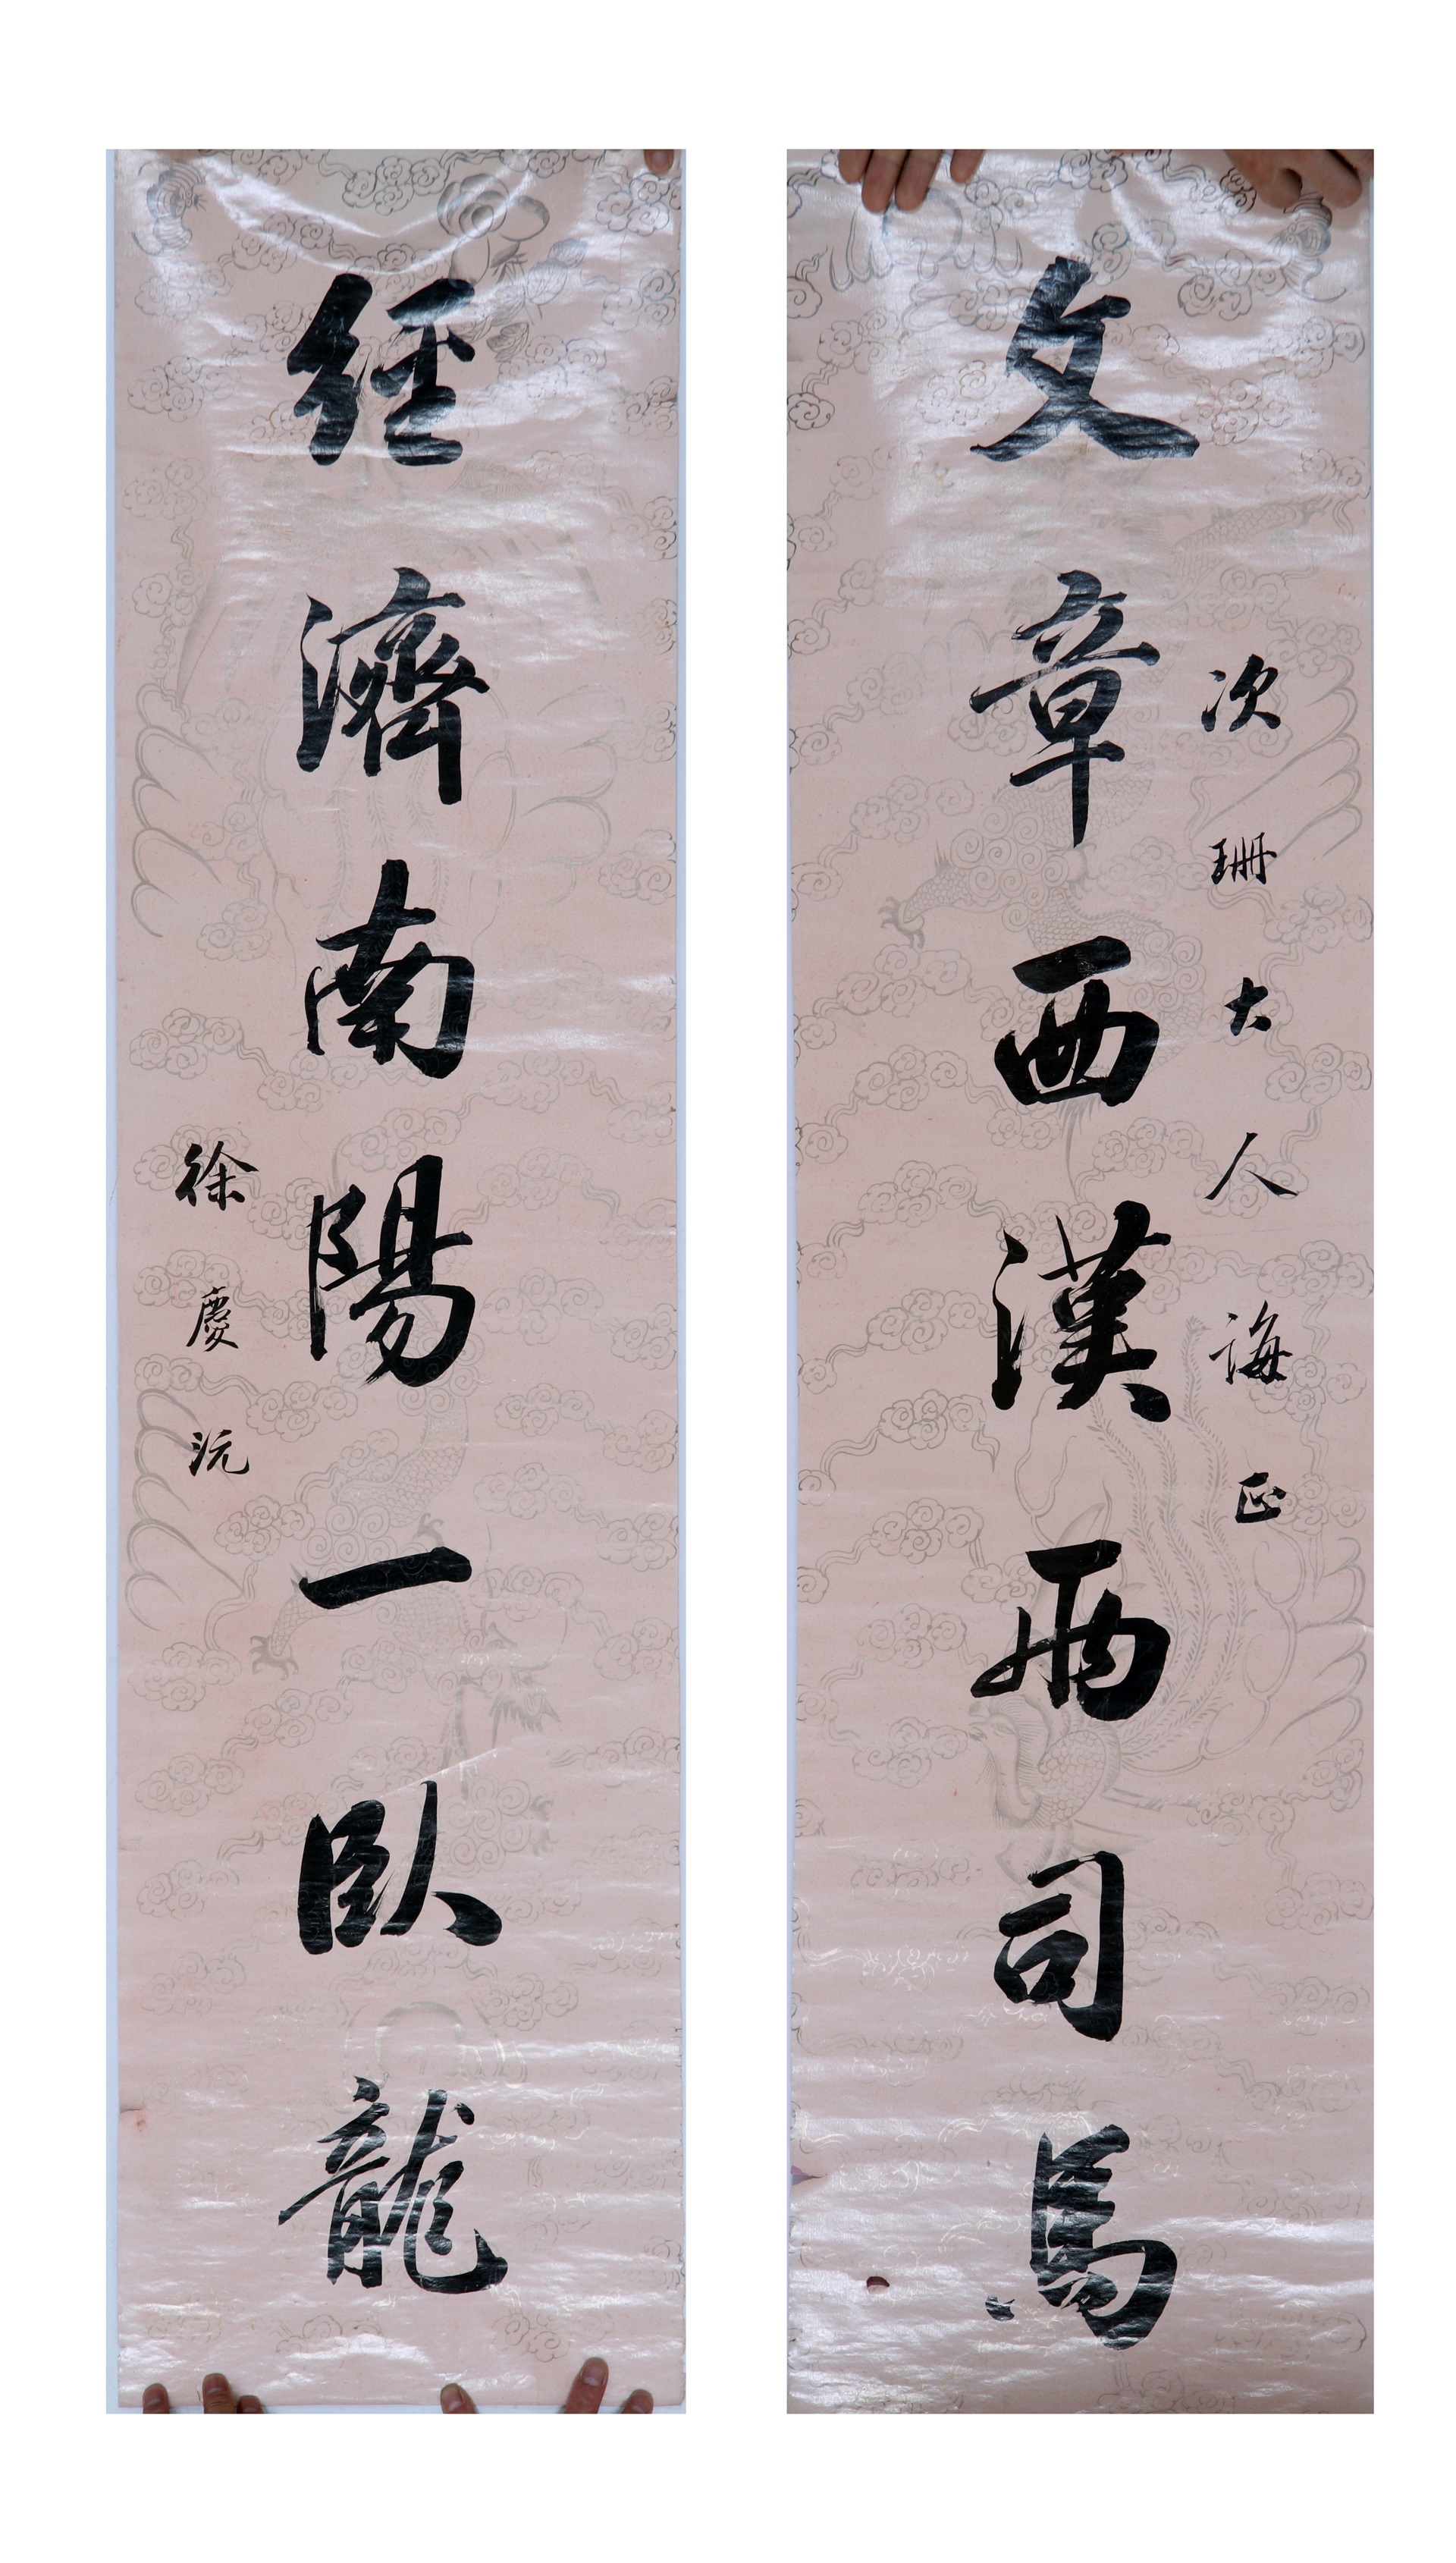 次珊大人誨正
文章西漢兩司馬
經濟南陽一臥龍
徐慶沅